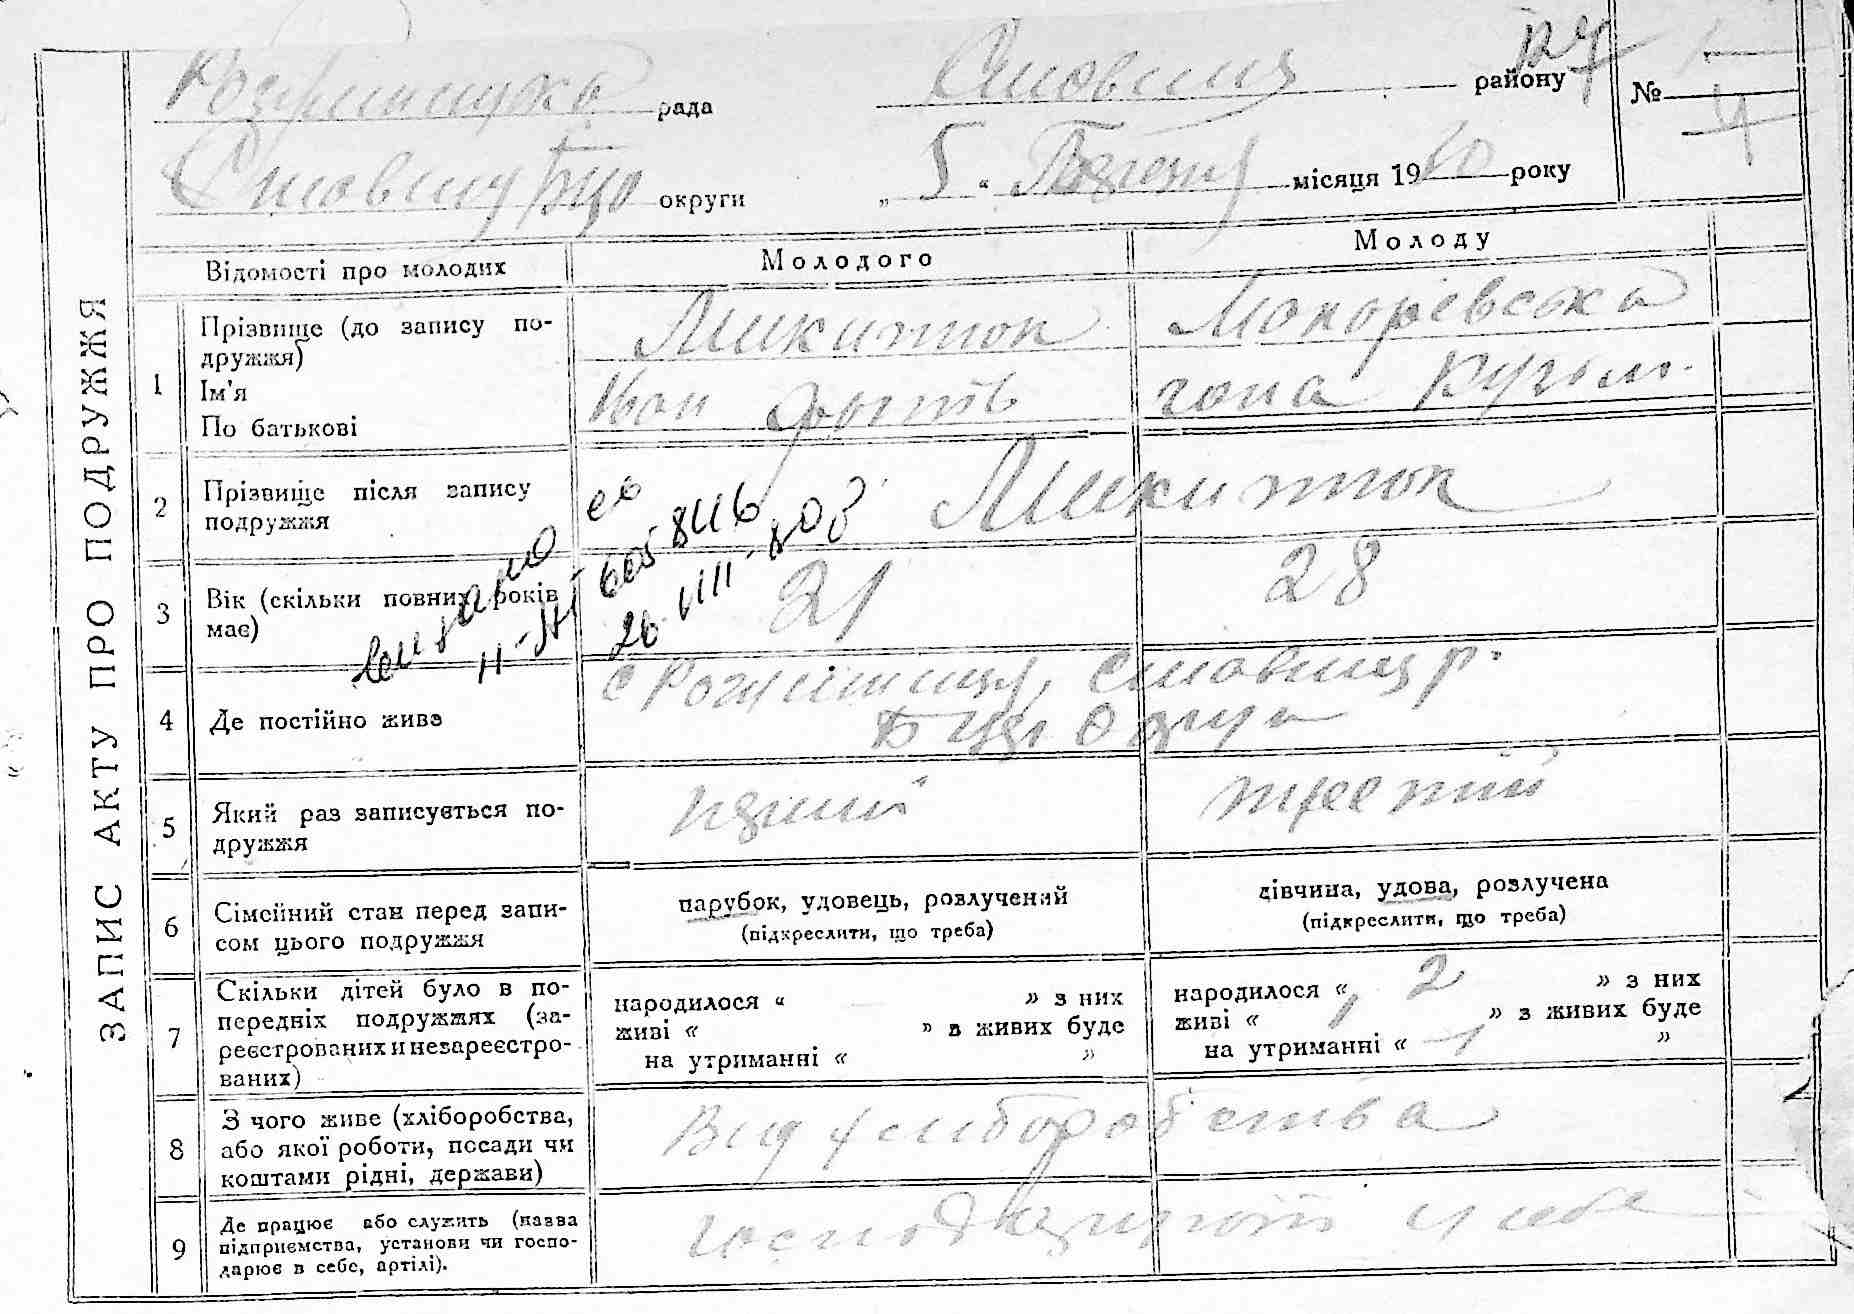 ЗАПИС АКТУ ПРО ПОДРУЖЖЯ
рада Ставищ району №
округи „ 5 “ місяця 19 30 року 4
Відомості про молодих Молодого Молоду
1 Прізвище (до запису по-
дружжя) Микитюк Макаревська
Ім'я
По батькові Іван Кузьм.
2 Прізвище після запису
подружжя Микитюк
3 Вік (скільки повних років
має) 21 28
605846
26 VIII
4 Де постійно живе
с Ставищ р.
Б Цер Округ
5 Який раз записується по-
дружжя перший третій
6 Сімейний стан перед запи-
сом цього подружжя
парубок, удовець, розлучений
(підкреслити, що треба)
дівчина, удова, розлучена
(підкреслити, що треба)
7 Скільки дітей було в по-
передніх подружжях (за-
реєстрованих и незареєстро-
ваних)
народилося « » з них
живі « » в живих буде
на утриманні « »
народилося « 2 » з них
живі « 1 » з живих буде
на утриманні « 1 »
8 З чого живе (хліборобства,
або якої роботи, посади чи
коштами рідні, держави)
Від хліборобства
9 Де працює або служить (назва
підприємства, установи чи госпо-
дарює в себе, артілі).
у себе